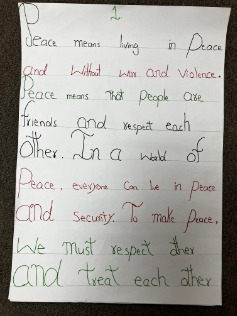 1
Peace means living in Peace
and without war and violence.
Peace means that people are
friends and respect each
other. In a world of
Peace, everyone can be in peace
and security. To make peace,
We must respect other
and treat each other